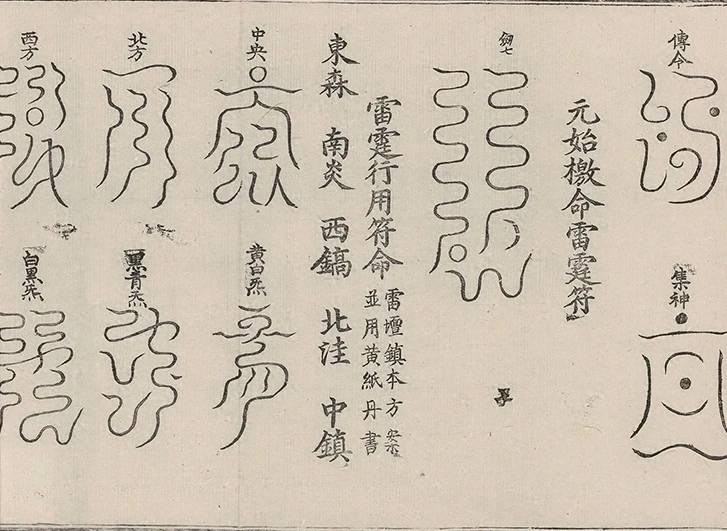 傳令
集神
元始檄命雷霆符
劒七
雷霆行用符命
雷壇鎮本方
並用黄紙丹書
東森 南炎 西鎬 北洼 中鎮
中央
黄白炁
北方
黒青炁
西方
白黒炁